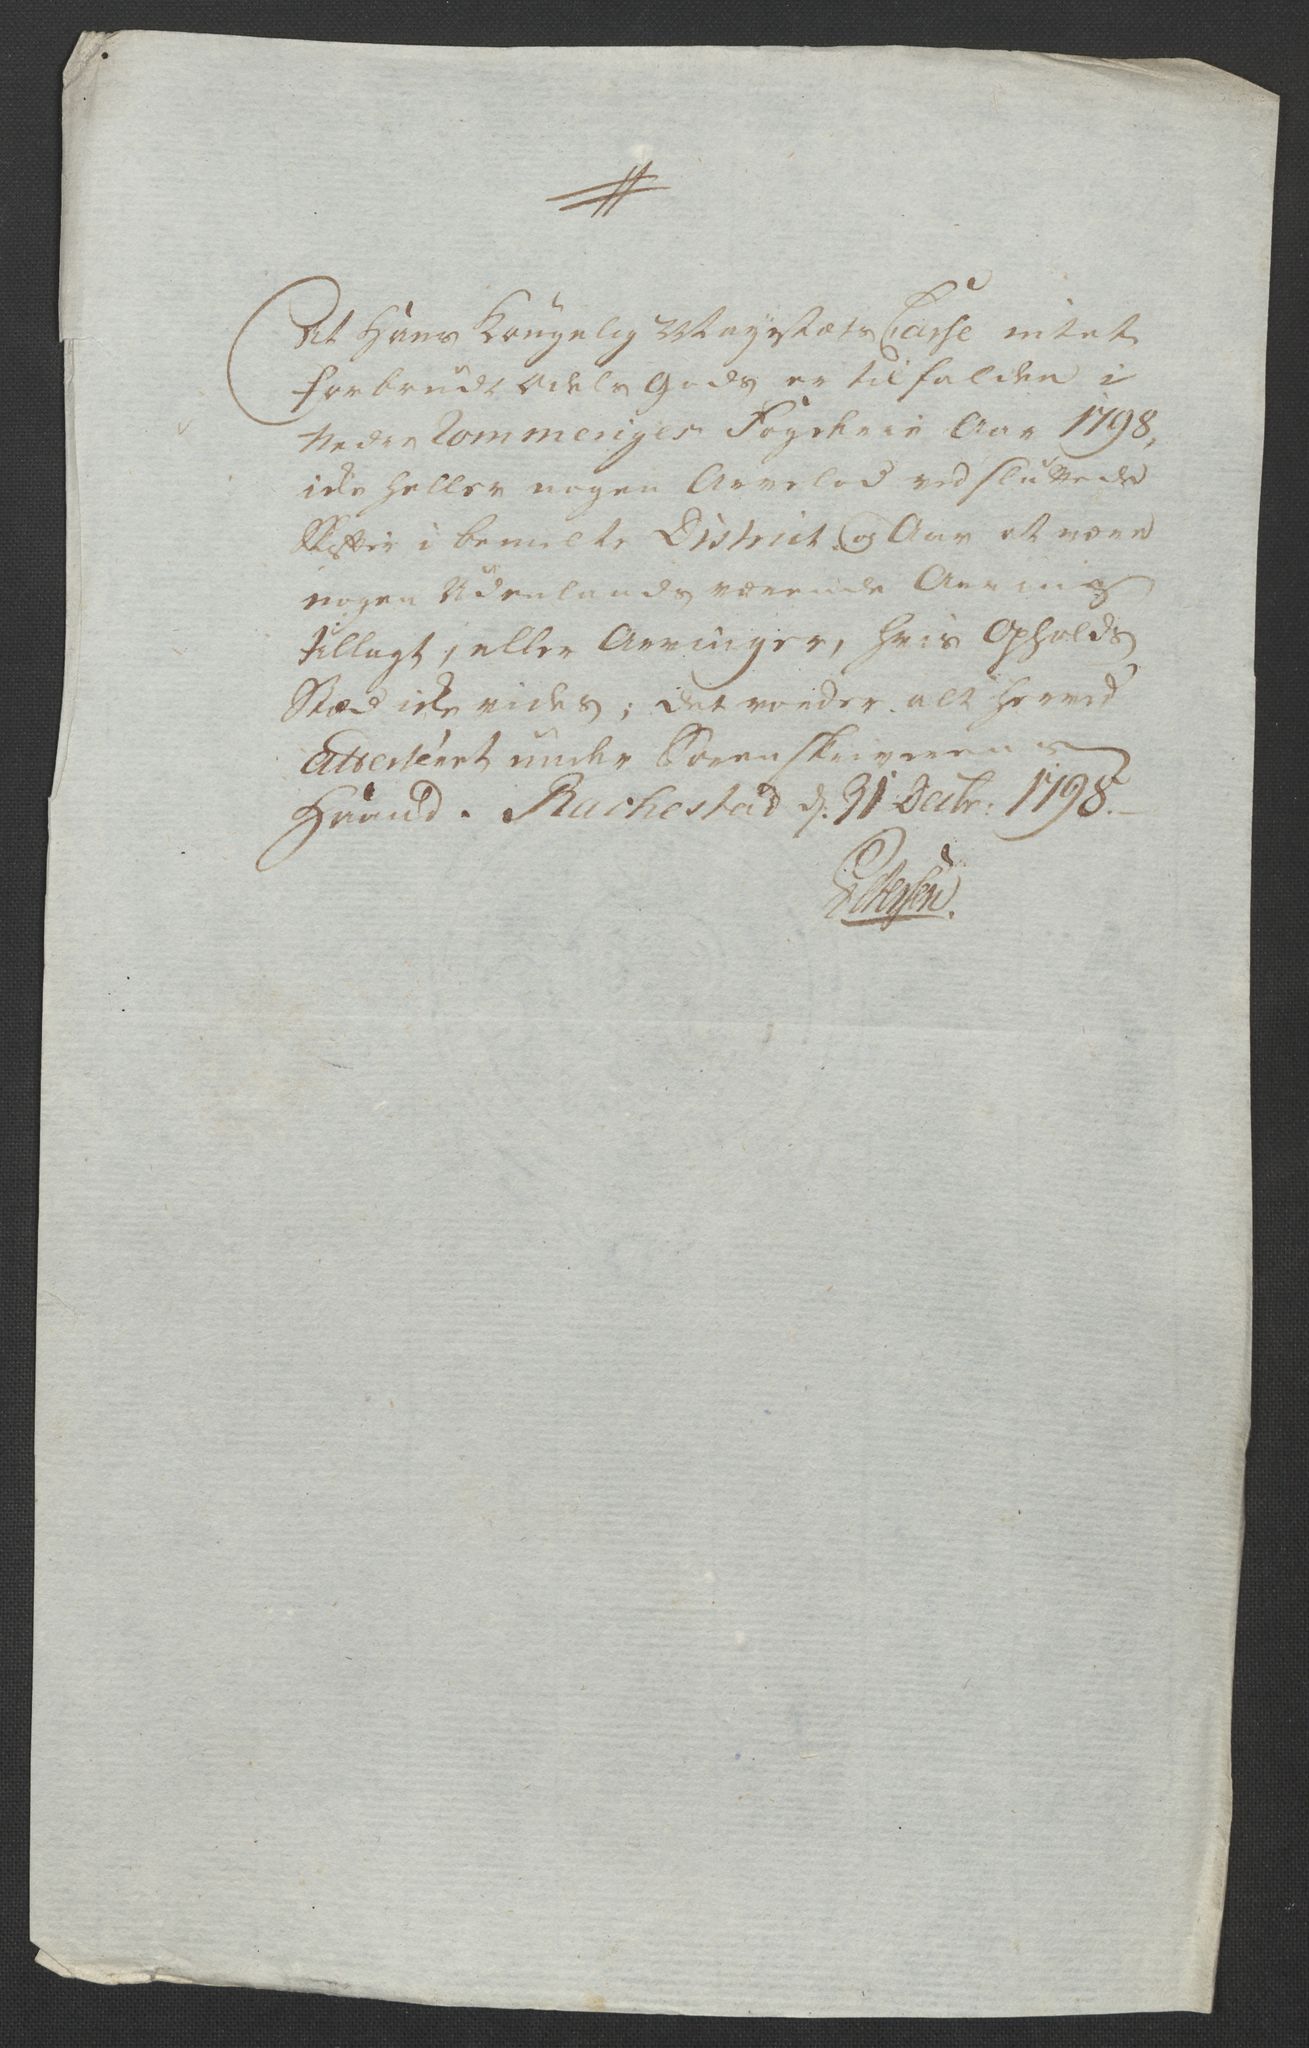 At Hans Kongelig Mayestæts Casse intet
forbrudt Odels Gods er tilfalden i
Nedre Rommeriges Fogderie Aar 1798,
icke heller nogen Arvelod ved sluttede
Skifter i bemelte District og Aar at være
nogen Udenlands værende Arving
tillagt, eller Arvinger, hvis Opholds
Stæd icke vides; det vorder alt herved
attesteret under Sorenskriverens
Haand. Rachestad d: 31 Decbr: 1798.